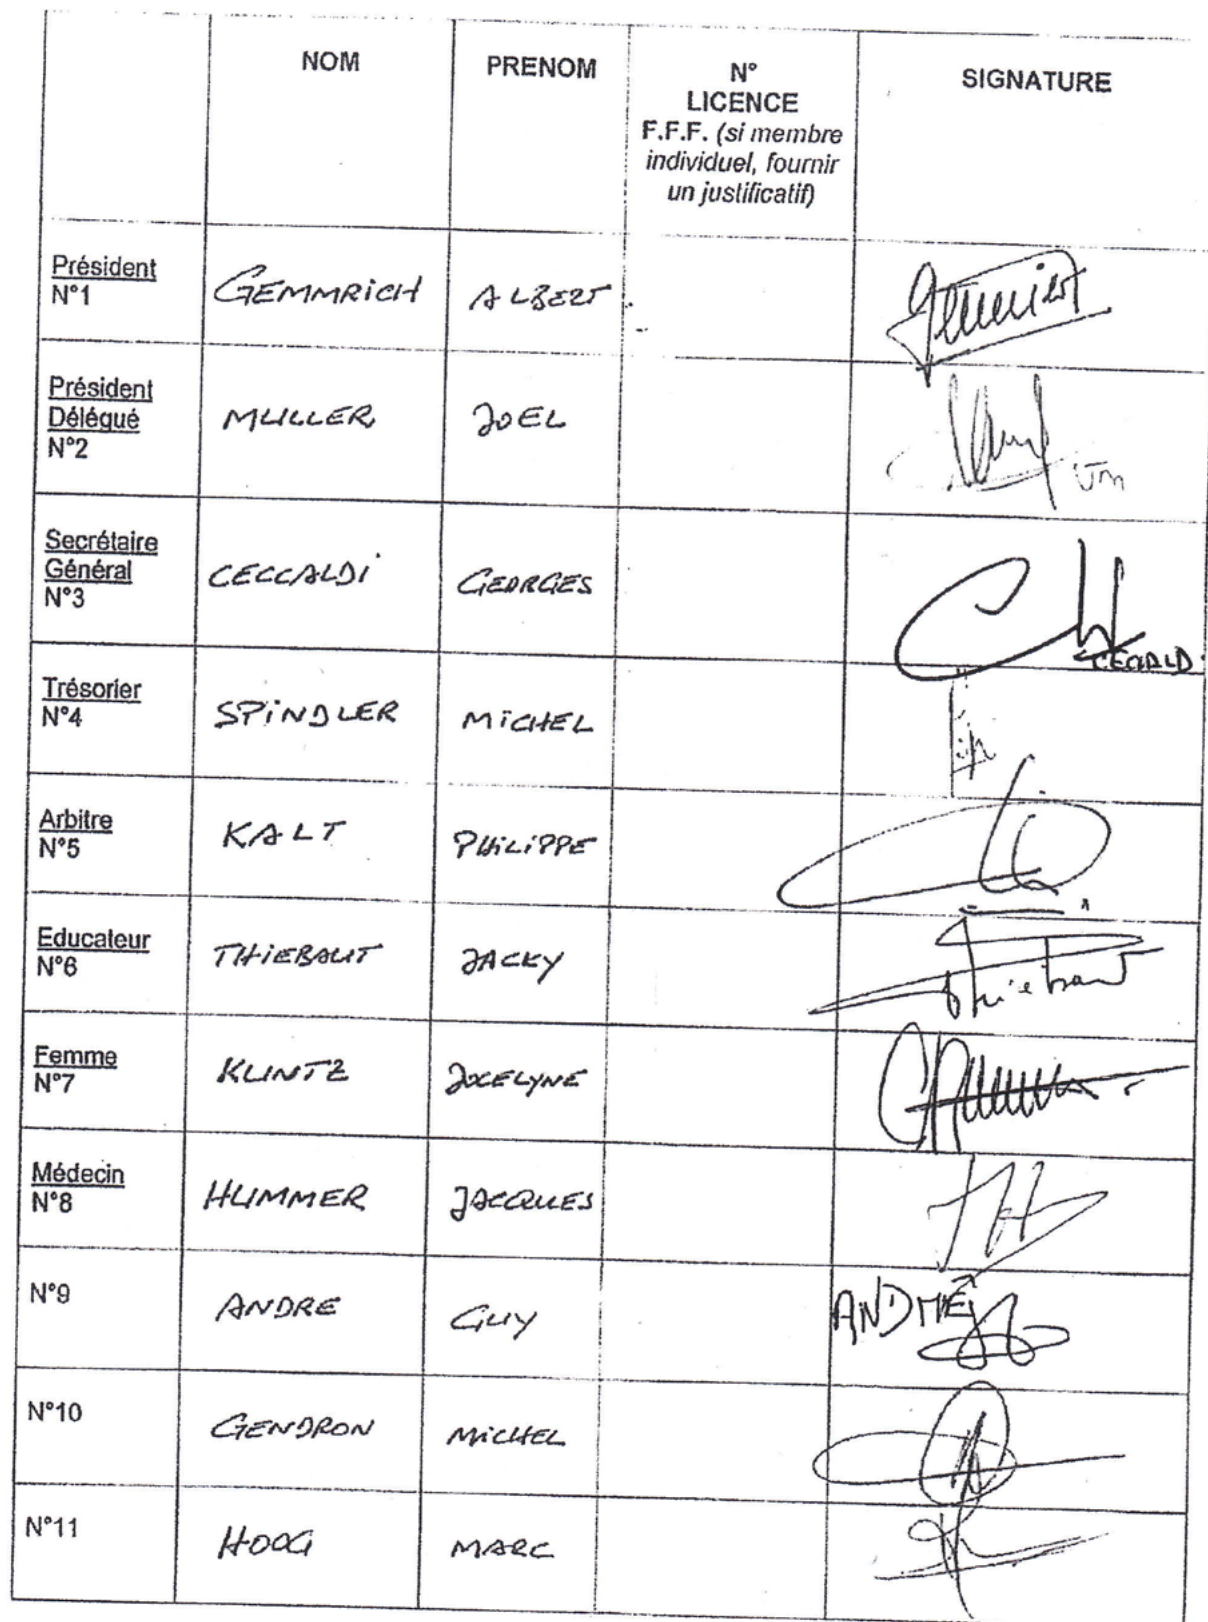 NOM PRENOM N° SIGNATURE
LICENCE
F.F.F. (si membre
individuel, fournir
un justificatif)
Président
N°1 GEMMRICH ALBERT
Président
Délégué
N°2 MULLER JOEL
JM
Secrétaire
Général
N°3 CECCALDI GEORGES
Trésorier
N°4 SPINDLER MICHEL
Arbitre
N°5 KALT PHILIPPE
Educateur
N°6 THIEBAUT JACKY
Femme
N°7 KUNTZ JOCELYNE
Médecin
N°8 HUMMER JACQUES JH
N°9 ANDRE GUY ANDRÉ
N°10 GENDRON MICHEL
N°11 HOOG MARC